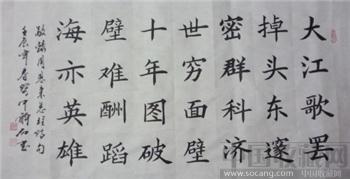 大江歌罢
掉头东邃
密群科济
世穷面壁
十年图破
壁难酬蹈
海亦英雄
敬录周恩来总理诗句
壬辰年春贺仲祥石书
www.socang.com 中国收藏网